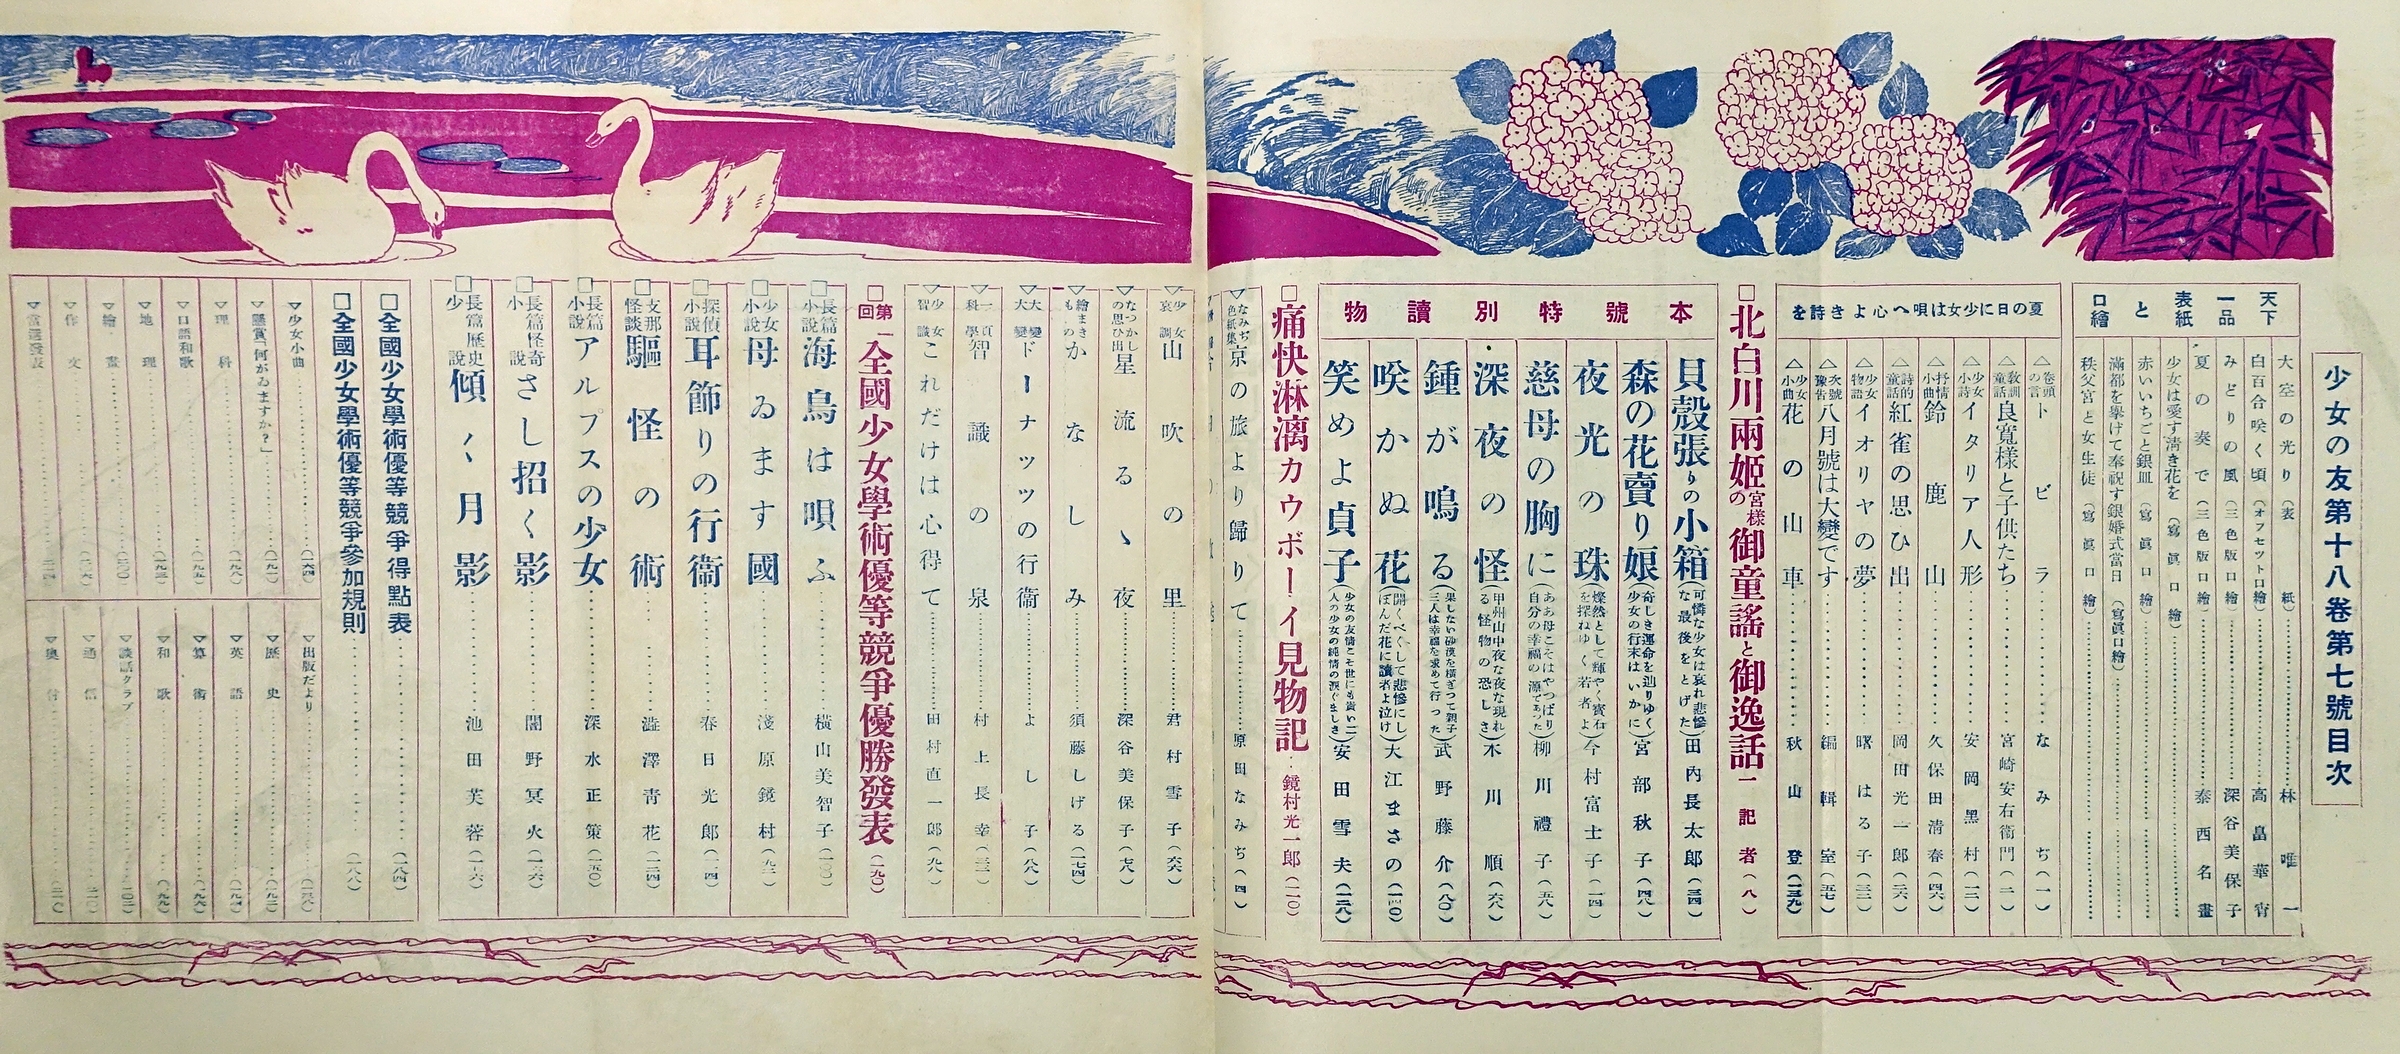 少女の友第十八卷第七號目次
天下一品表紙と口繪
大空の光り（表紙）……林唯一
白百合咲く頃（オフセツト口繪）……高畠華宵
みどりの風（三色版口繪）……深谷美保子
夏の奏で（三色版口繪）……泰西名畫
少女は愛す淸き花を（寫眞口繪）
赤いいちごと銀皿（寫眞口繪）
滿都を擧げて奉祝す銀婚式當日（寫眞口繪）
秩父宮と女生徒（寫眞口繪）
夏の日に少女は唄へ心よき詩を
△卷頭の言 トビラ……なみぢ（一）
△敎訓童話 良寬樣と子供たち……宮崎安右衞門（二）
△少女小詩 イタリア人形……安岡黑村（一二）
△抒情小曲 鈴鹿山……久保田淸春（四六）
△詩的童話 紅雀の思ひ出……岡田光一郞（二六）
△少女物語 イオリヤの夢……曙はる子（三二）
△次號豫吿 八月號は大變です……編輯室（五七）
△少女小曲 花の山車……秋山登（一三九）
□北白川兩姬宮樣の御童謠と御逸話……一記者（八）
本號特別讀物
貝殼張りの小箱（可憐な少女は哀れ悲慘な最後をとげた）田內長太郞（三四）
森の花賣り娘（奇しき運命を辿りゆく少女の行末はいかに）宮部秋子（四八）
夜光の珠（燦然として輝やく寳石を探ねゆく若者よ）今村富士子（一四）
慈母の胸に（ああ母こそはやつぱり自分の幸福の源であつた）柳川禮子（五八）
深夜の怪（甲州山中夜な夜な現れる怪物の恐しさ）木川順（六八）
鍾が鳴る（果しない砂漠を橫ぎつて親子三人は幸福を求めて行つた）武野藤介（八〇）
咲かぬ花（開くべくして悲慘にしぼんだ花に讀者よ泣け）大江まさの（一四〇）
笑めよ貞子（少女の友情こそ世にも貴い二人の少女の純情の淚ぐましさ）安田雪夫（一二八）
□痛快淋漓カウボーイ見物記……鏡村光一郞（一一〇）
▽なみぢ色紙集 京の旅より歸りて……原田なみぢ（四）
▽少女哀調 山吹の里……君村雪子（六六）
▽なつかしの思ひ出 星流るゝ夜……深谷美保子（七八）
▽繪まきもの かなしみ……須藤しげる（一七四）
▽大變大變 ドーナッツの行衞……よし子（八八）
▽一頁科學 智識の泉……村上長幸（三三）
▽少女智識 これだけは心得て……田村直一郞（九八）
□第一回全國少女學術優等競爭優勝發表（一九〇）
□長篇小說 海鳥は唄ふ……橫山美智子（一〇〇）
□少女小說 母ゐます國……淺原鏡村（九二）
□探偵小說 耳飾りの行衞……春日光郞（一一四）
□支那怪談 驅怪の術……澁澤靑花（一二四）
□長篇小說 アルプスの少女……深水正策（一五〇）
□長篇怪奇小說 さし招く影……闇野冥火（一六六）
□長篇歷史少說 傾く月影……池田芙蓉（一七六）
□全國少女學術優等競爭得點表……（一八四）
□全國少女學術優等競爭參加規則……（一八八）
▽少女小曲……（一六四）
▽懸賞「何がゐますか？」……（一九二）
▽理科……（一九八）
▽口語和歌……（一九五）
▽地理……（一九三）
▽繪畫……（二〇〇）
▽作文……（二〇六）
▽當選發表……（二一四）
▽出版だより
▽歷史……（一九二）
▽英語……（一九四）
▽算術……（一九六）
▽和歌
▽談話クラブ……（二〇二）
▽通信……（二一〇）
▽奧付